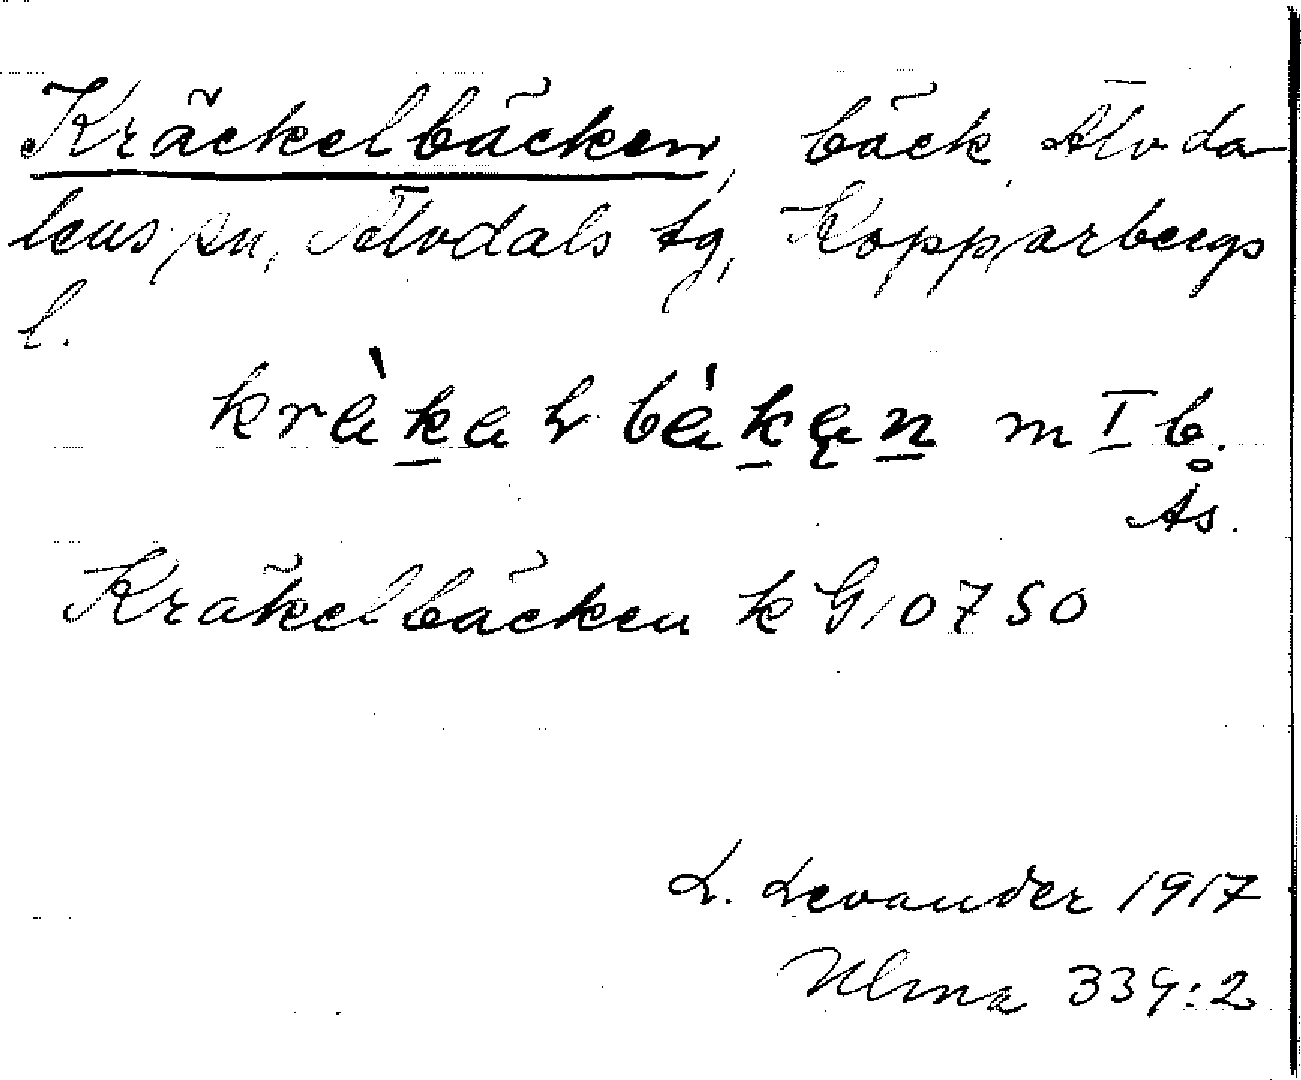 Kräckelbäcken, bäck, Älvda-
lens sn, Älvdals tg, Kopparbergs
l.
m I b.
Ås.
Kräkelbäcken k G10750
L. Levander 1917
Ulma 339:2